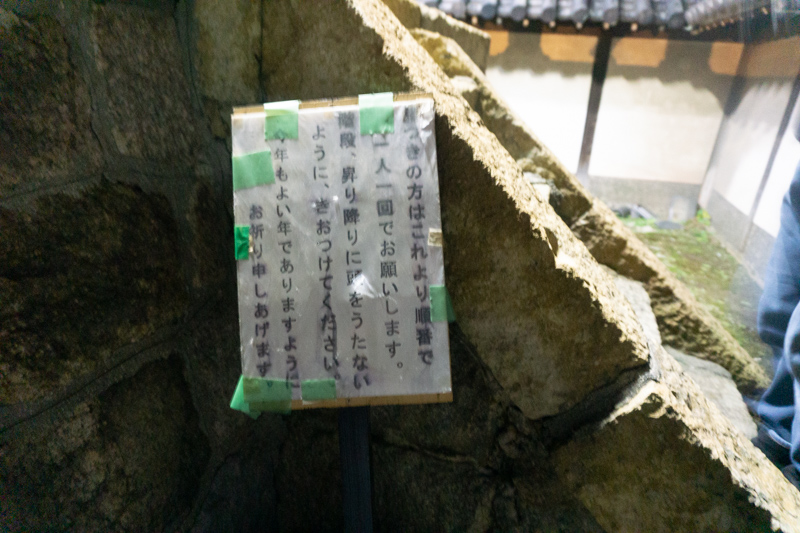 つきの方はこれより順番で
一人一回でお願いします。
階段、昇り降りに頭をうたない
ように、きおつけてください。
今年もよい年でありますように
お祈り申しあげます。